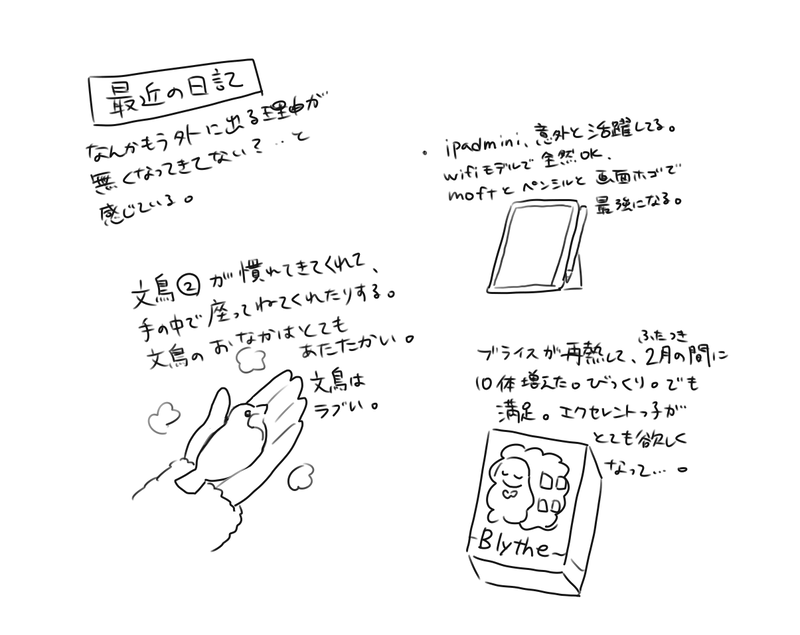 最近の日記
なんかもう外に出る理由が
無くなってきてない？‥と
感じている。
文鳥②が慣れてきてくれて、
手の中で座ってねてくれたりする。
文鳥のおなかはとても
あたたかい。
文鳥は
ラブい。
・ipadmini、意外と活躍してる。
wifiモデルで全然OK、
moftとペンシルと画面ホゴで
最強になる。
ブライスが再熱して、2月の間に
ふたつき
10体増えた。びっくり。でも
満足。エクセレントっ子が
とても欲しく
なって…。
Blythe